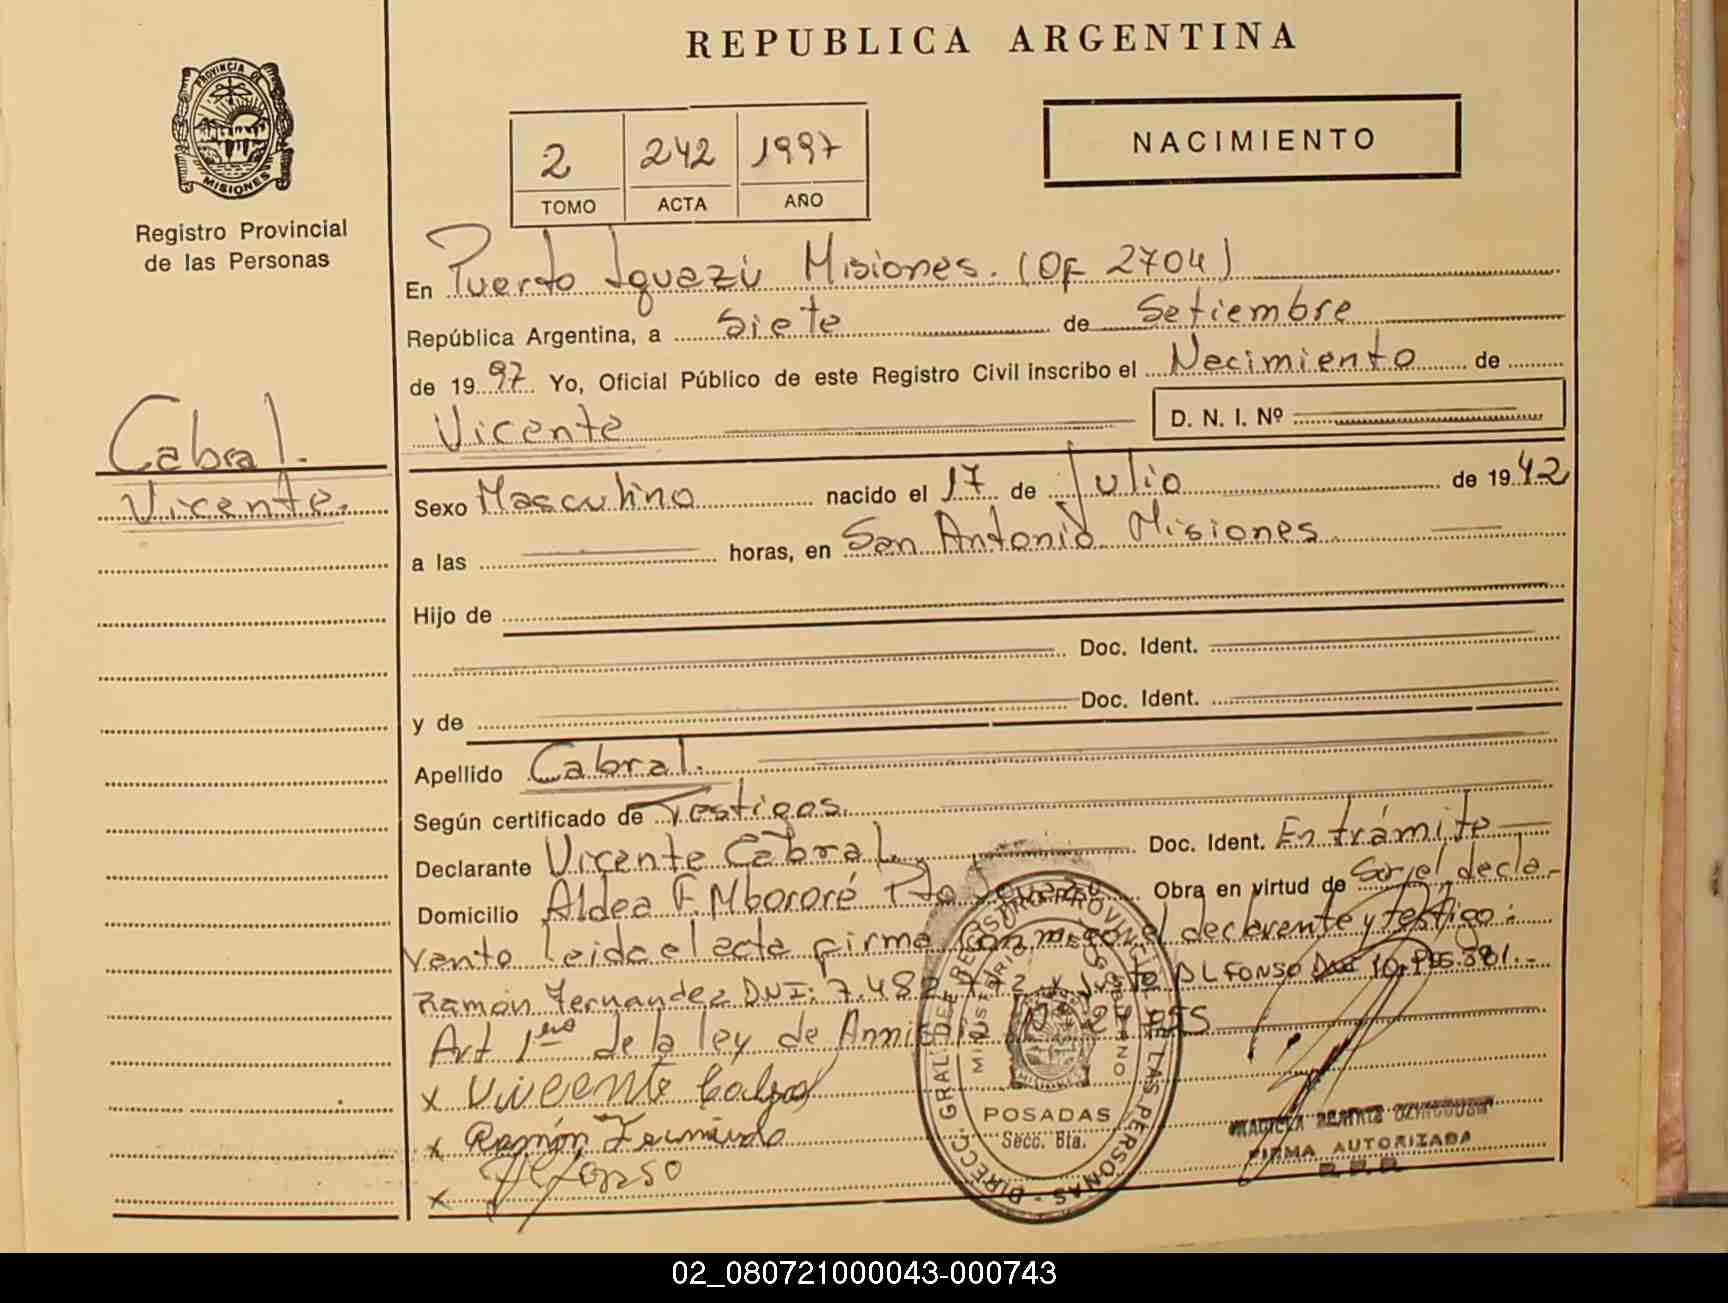 REPUBLICA ARGENTINA
PROVINCIA DE
MISIONES
Registro Provincial
de las Personas
2 242 1997
TOMO ACTA AÑO
NACIMIENTO
En Puerto Iguazú Misiones. (Of 2704)
República Argentina, a Siete de Setiembre
de 1997 Yo, Oficial Público de este Registro Civil inscribo el Nacimiento de
Vicente D. N. I. Nº
Cabral.
Vicente.
Sexo Masculino nacido el 17 de Julio de 1942
a las horas, en San Antonio Misiones
Hijo de
Doc. Ident.
y de Doc. Ident.
Apellido Cabral.
Según certificado de Testigos.
Declarante Vicente Cabral Doc. Ident. En trámite
Domicilio Aldea F. Mbororé Pto Iguazú Obra en virtud de Ser el decla-
rante leida el acta firma conmigo el declarante y testigo:
Ramón Fernandez DNI: 7.482.772 y Justo ALFONSO
Art 1ero de la ley de Amnistia Nº
x Viveente Cabral
x Ramón
x Alfonso
DIRECC. GRAL. DEL REGISTRO PROVINCIAL DE LAS PERSONAS
MINISTERIO DE GOBIERNO
MISIONES
POSADAS
Secc. Bta.
FIRMA AUTORIZADA
02_080721000043-000743